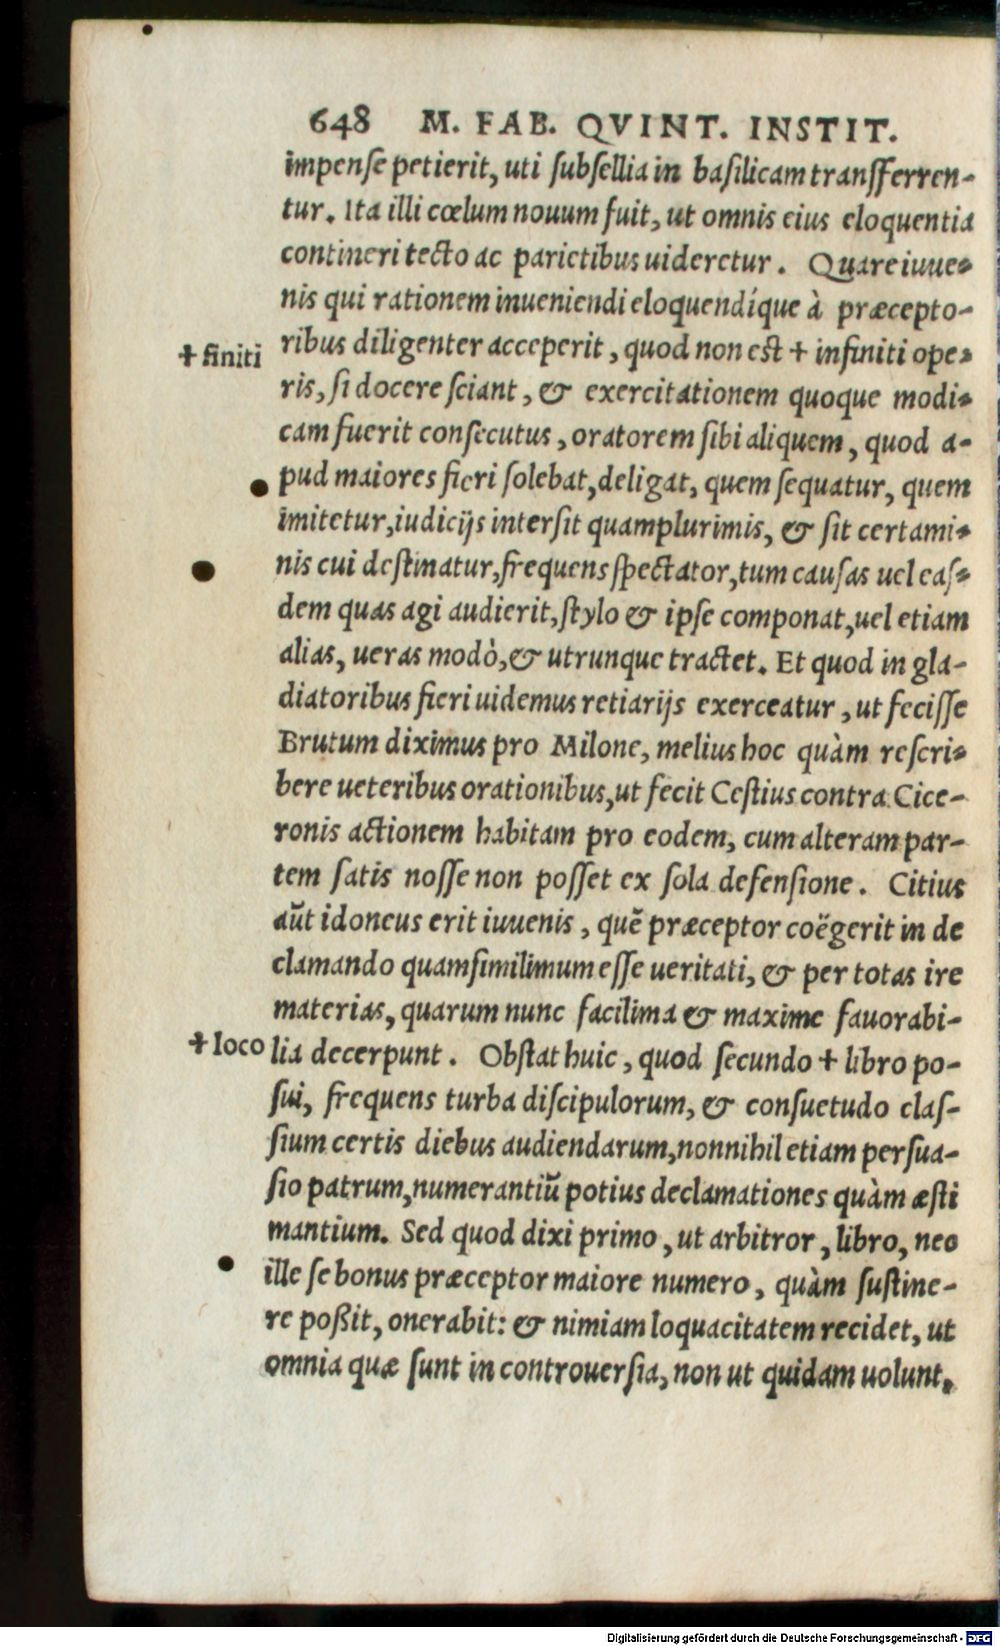 648 M. FAB. QVINT. INSTIT.
impenſe petierit, uti ſubſellia in baſilicam tranſferren-
tur. Ita illi cœlum nouum fuit, ut omnis eius eloquentia
contineri tecto ac parietibus uideretur. Quare iuue-
nis qui rationem inueniendi eloquendíque à præcepto-
✝ finiti ribus diligenter acceperit, quod non est ✝ infiniti ope-
ris, ſi docere ſciant, & exercitationem quoque modi-
cam fuerit conſecutus, oratorem ſibi aliquem, quod a-
pud maiores fieri ſolebat, deligat, quem ſequatur, quem
imitetur, iudicijs interſit quamplurimis, & ſit certami-
nis cui deſtinatur, frequens ſpectator, tum cauſas uel eaſ-
dem quas agi audierit, ſtylo & ipſe componat, uel etiam
alias, ueras modò, & utrunque tractet. Et quod in gla-
diatoribus fieri uidemus retiarijs exerceatur, ut feciſſe
Brutum diximus pro Milone, melius hoc quàm reſcri-
bere ueteribus orationibus, ut fecit Ceſtius contra Cice-
ronis actionem habitam pro eodem, cum alteram par-
tem ſatis noſſe non poſſet ex ſola defenſione. Citius
aūt idoneus erit iuuenis, quē præceptor coëgerit in de
clamando quamſimilimum eſſe ueritati, & per totas ire
materias, quarum nunc facilima & maxime fauorabi-
✝ loco lia decerpunt. Obſtat huic, quod ſecundo ✝ libro po-
ſui, frequens turba diſcipulorum, & conſuetudo claſ-
ſium certis diebus audiendarum, nonnihil etiam perſua-
ſio patrum, numerantiū potius declamationes quàm æſti
mantium. Sed quod dixi primo, ut arbitror, libro, nec
ille ſe bonus præceptor maiore numero, quàm ſuſtine-
re poßit, onerabit: & nimiam loquacitatem recidet, ut
omnia quæ ſunt in controuerſia, non ut quidam uolunt,
Digitalisierung gefördert durch die Deutsche Forschungsgemeinschaft - DFG